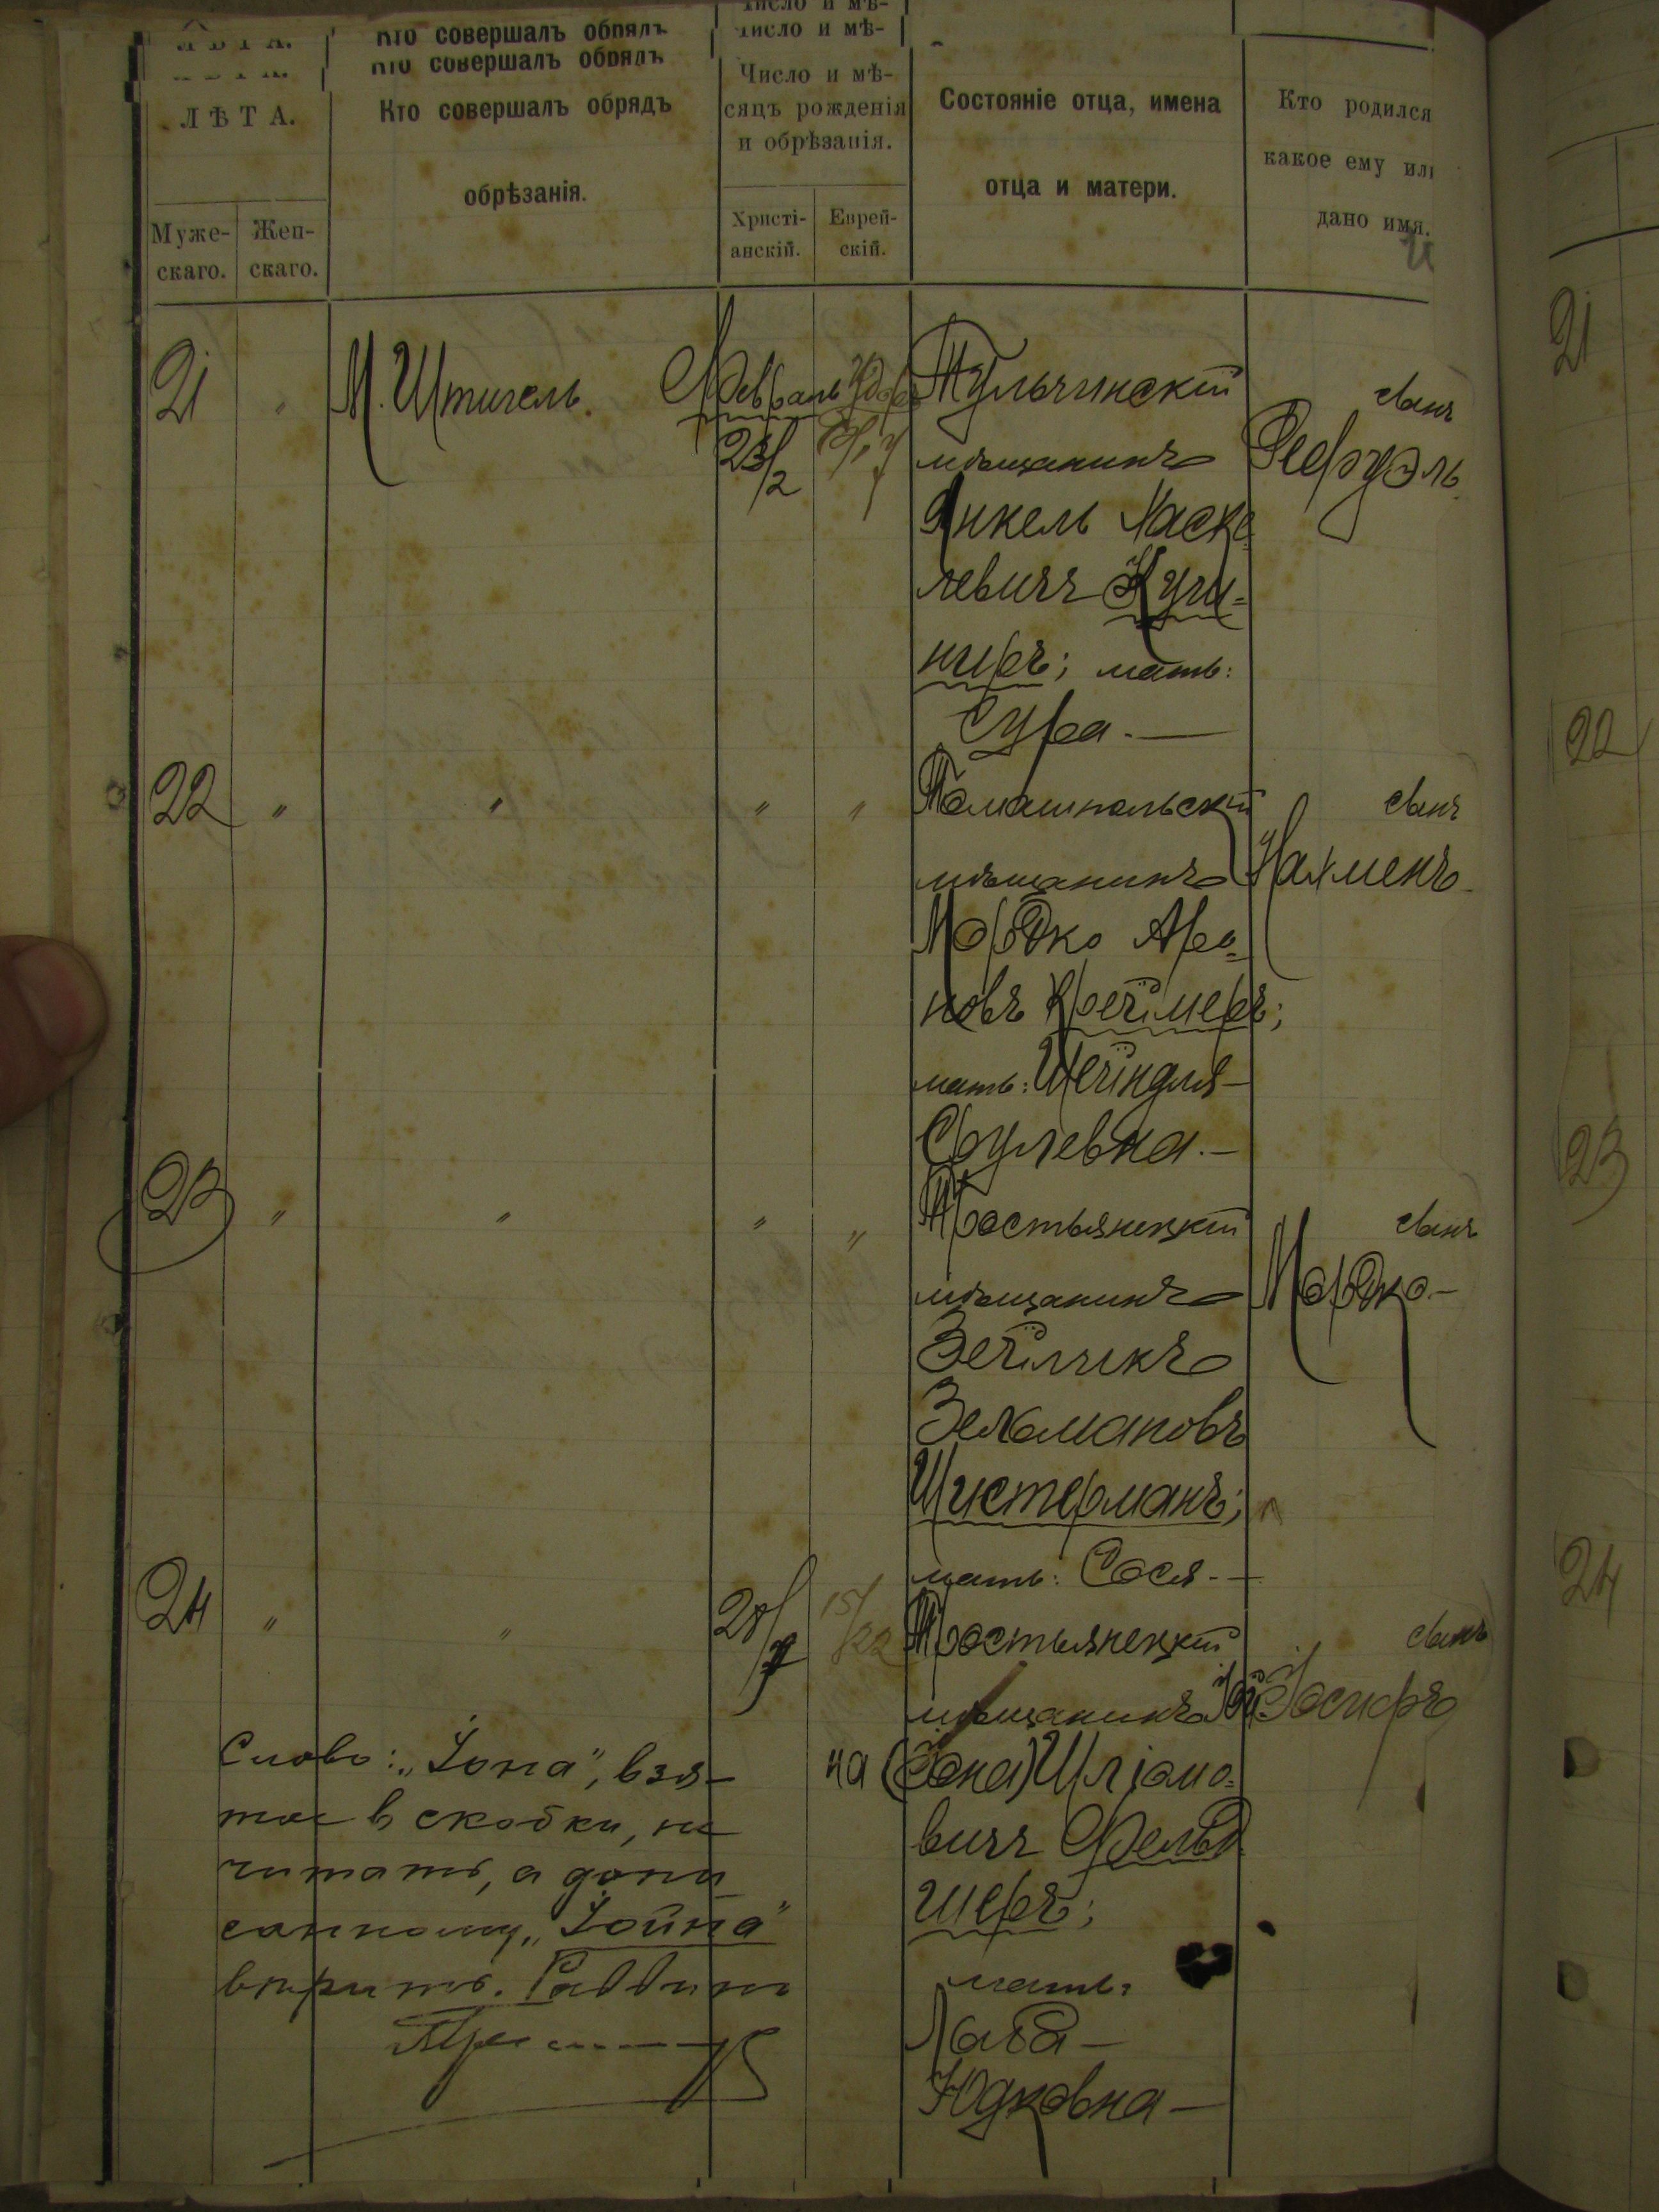 ЛѢТА.
Кто совершалъ обрядъ
обрѣзанія.
Число и мѣ-
сяцъ рожденія
и обрѣзанія.
Состояніе отца, имена
отца и матери.
Кто родился
какое ему или
дано имя.
Муже-
скаго.
Жен-
скаго.
Христі-
анскій.
Еврей-
скій.
21 " М. Штигель. Февраль 23/2
Тульчинскій
мѣщанинъ
Янкель Хаске
левичъ Кучи-
ниръ; мать:
Сура. —
сынъ
Рефуэль
22 " " " "
Томашпольскій
мѣщанинъ
Мордко Аро-
новъ Крейтмеръ;
мать: Шейндля —
Срулевна. —
сынъ
Нахменъ
23 " " " "
Тростьянецкій
мѣщанинъ
Зейликъ
Зелмановъ
Шистерманъ;
мать: Сося. —
сынъ
Мордко —
24 " " 28/7 15/22
Тростьянецкій
мѣщанинъ Іой
на (Іона) Шліомо-
вичъ Фельд
шеръ;
мать:
Хава —
Юдковна —
сынъ
Іосифъ
Слово: „Іона", взя-
тое в скобки, не
читать, а допи
санному „Іойна"
вѣрить. Раввинъ
21
22
23
24